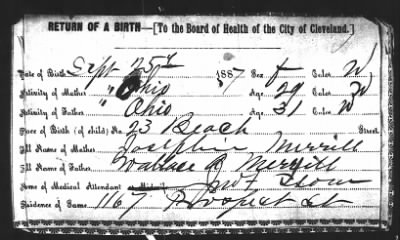 RETURN OF A BIRTH—[To the Board of Health of the City of Cleveland.]
Date of Birth Sept 25th 1887 Sex f Color W
Nativity of Mother " Ohio Age 29 Color W
Nativity of Father " Ohio Age 31 Color W
Place of Birth (of child) No. 23 Beach Street
Full Name of Mother Josephine Merrill
Full Name of Father Wallace B Merrill
Name of Medical Attendant
Residence of Same 1167 Prospect St